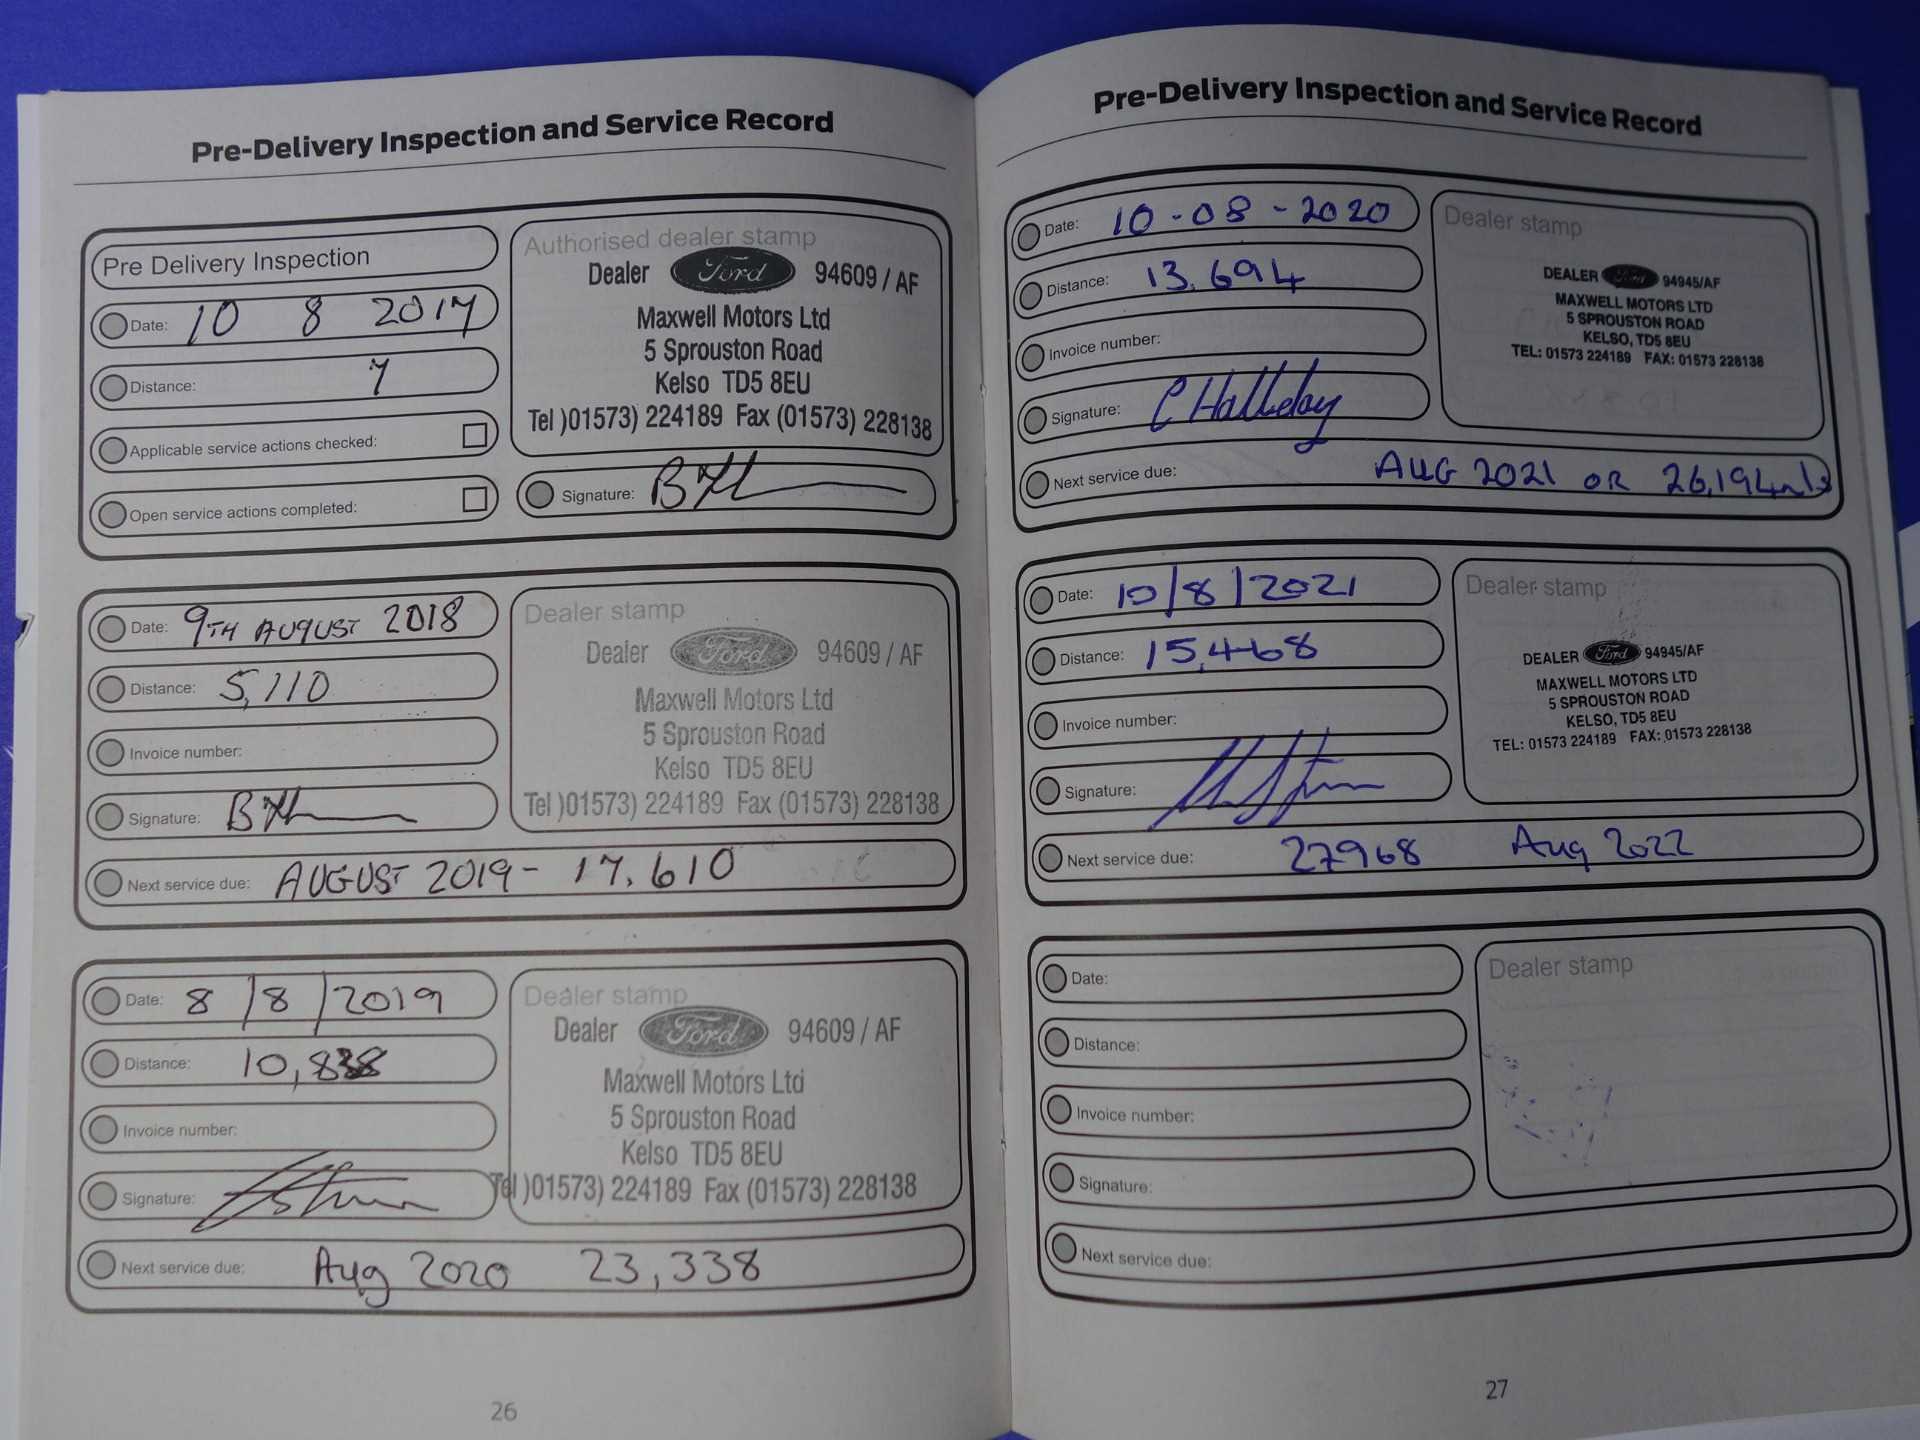 Pre-Delivery Inspection and Service Record
Pre Delivery Inspection
Date: 10 8 2017
Distance: 7
Applicable service actions checked:
Open service actions completed:
Authorised dealer stamp
Dealer Ford 94609 / AF
Maxwell Motors Ltd
5 Sprouston Road
Kelso TD5 8EU
Tel )01573) 224189 Fax (01573) 228138
Signature:
Date: 9TH AUGUST 2018
Distance: 5,110
Invoice number:
Signature:
Dealer stamp
Dealer Ford 94609 / AF
Maxwell Motors Ltd
5 Sprouston Road
Kelso TD5 8EU
Tel )01573) 224189 Fax (01573) 228138
Next service due: AUGUST 2019 - 17.610
Date: 8/8/2019
Distance: 10,838
Invoice number:
Signature:
Dealer stamp
Dealer Ford 94609 / AF
Maxwell Motors Ltd
5 Sprouston Road
Kelso TD5 8EU
Tel )01573) 224189 Fax (01573) 228138
Next service due: Aug 2020 23,338
26
Pre-Delivery Inspection and Service Record
Date: 10-08-2020
Distance: 13.694
Invoice number:
Signature: C Halliday
Dealer stamp
DEALER Ford 94945/AF
MAXWELL MOTORS LTD
5 SPROUSTON ROAD
KELSO, TD5 8EU
TEL: 01573 224189 FAX: 01573 228138
Next service due: AUG 2021 OR 26,194mls
Date: 10/8/2021
Distance: 15,468
Invoice number:
Signature:
Dealer stamp
DEALER Ford 94945/AF
MAXWELL MOTORS LTD
5 SPROUSTON ROAD
KELSO, TD5 8EU
TEL: 01573 224189 FAX: 01573 228138
Next service due: 27968 Aug 2022
Date:
Distance:
Invoice number:
Signature:
Dealer stamp
Next service due:
27